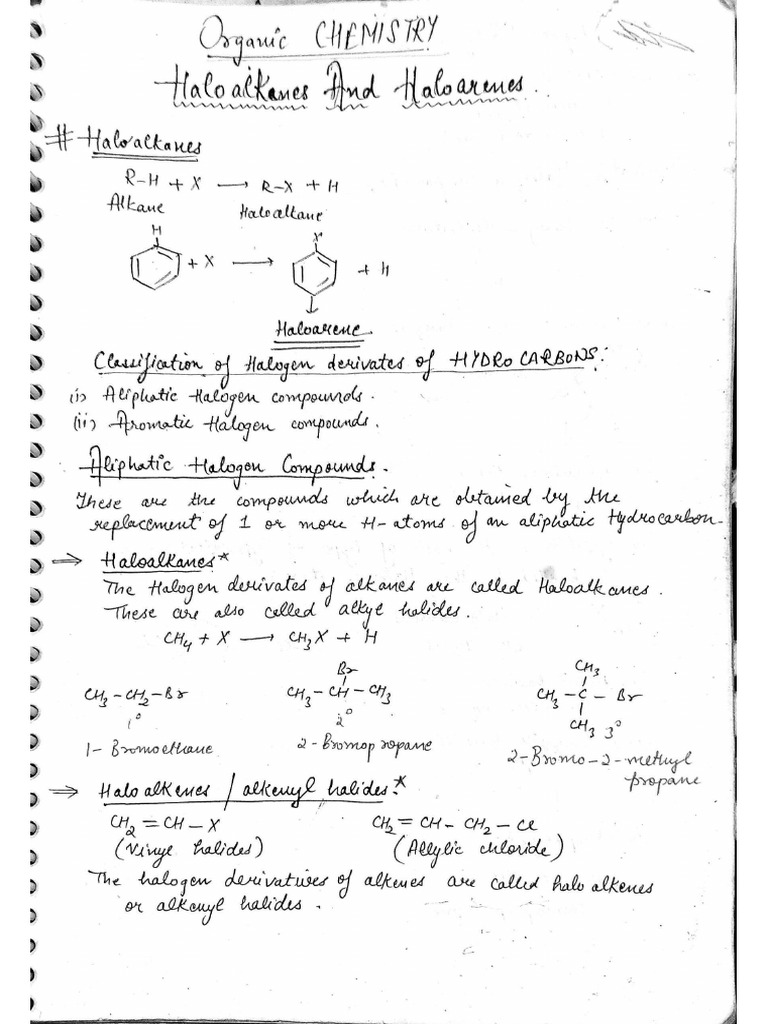 Organic CHEMISTRY
Haloalkanes And Haloarenes.
# Haloalkanes
R-H + X → R-X + H
Alkane Haloalkane
H X
+ X → + H
Haloarene
Classification of Halogen derivates of HYDROCARBONS:
(i) Aliphatic Halogen compounds.
(ii) Aromatic Halogen compounds.
Aliphatic Halogen Compounds.
These are the compounds which are obtained by the
replacement of 1 or more H-atoms of an aliphatic Hydrocarbon.
⇒ Haloalkanes*
The Halogen derivates of alkanes are called Haloalkanes.
These are also called alkyl halides.
CH4 + X → CH3X + H
Br CH3
CH3-CH2-Br CH3-CH-CH3 CH3-C-Br
1° 2° CH3 3°
1-Bromoethane 2-Bromopropane 2-Bromo-2-methyl
propane
⇒ Haloalkenes / alkenyl halides:*
CH2=CH-X CH2=CH-CH2-Cl
(Vinyl halides) (Allylic chloride)
The halogen derivatives of alkenes are called halo alkenes
or alkenyl halides.